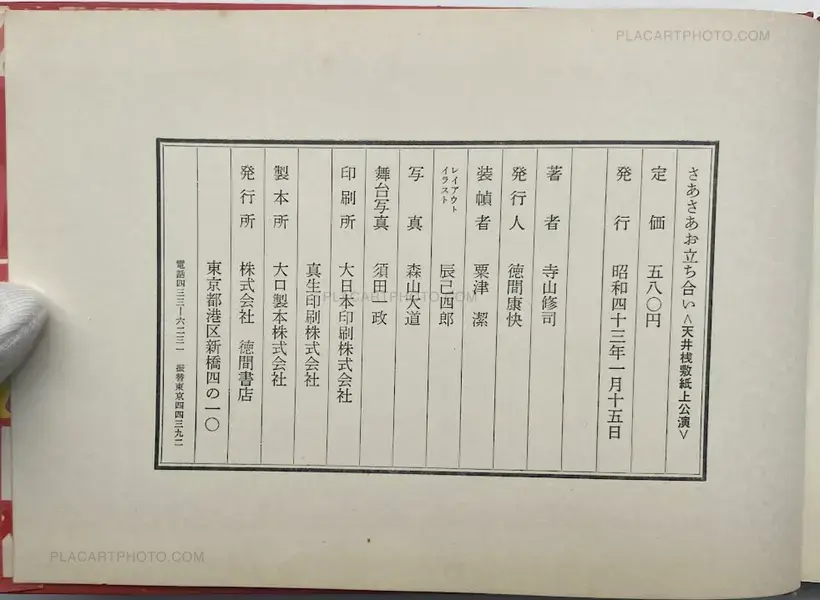 PLACARTPHOTO.COM
さあさあお立ち合い＜天井桟敷紙上公演＞
定価 五八〇円
発行 昭和四十三年一月十五日
著者 寺山修司
発行人 徳間康快
装幀者 粟津潔
レイアウト
イラスト 辰己四郎
写真 森山大道
舞台写真 須田政
印刷所 大日本印刷株式会社
真生印刷株式会社
製本所 大口製本株式会社
発行所 株式会社 徳間書店
東京都港区新橋四の一〇
電話四三三―六二三一 振替東京四四三九二
PLACARTPHOTO.COM
PLACARTPHOTO.COM